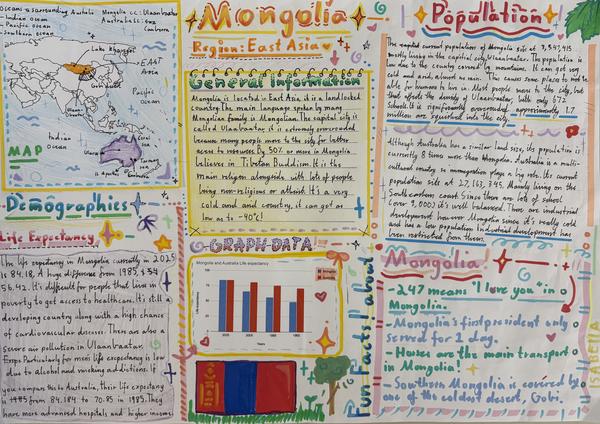 Mongolia
Region: East Asia
Oceans surrounding Australia:
- Indian Ocean
- Pacific Ocean
- Southern Ocean
Mongolia cc: Ulaanbaatar
Australia: cc
Canberra
Lake Khovsgol
EAST
Asia
Gobi
Pacific
Ocean
Indian
Ocean
Coral
Sea
MAP
General Information
Mongolia is located in East Asia, it is a landlocked
country. The main language spoken by many
Mongolian family is Mongolian. The capital city is
called Ulaanbaatar, it is extremely overcrowded
because many people move to the city for better
access to resources. By 50% or more in Mongolia
believes in Tibetan Buddhism. It is the
main religion alongside with lots of people
being non-religious or atheist. It's a very
cold and country, it can get as
low as to -40°C!
Population
The current population of Mongolia sits at 3,547,415
mostly living in the capital city, Ulaanbaatar. The population is
low due to the country
cold and and, almost no rain. This causes some places hard to
able for humans to live in. Most people move to the city, but
that affects the density of Ulaanbaatar, with only 672
schools. It is significantly overcrowded, approximately 1.7
million are squished into the city.
Although Australia has a similar land size, its population is
currently 8 times more than Mongolia. Australia is a multi-
cultural country so immigration plays a big role. Its current
population sits at 27,163,345. Mainly living on the
South eastern coast. Since there are lots of school
(over 9,000) it's well balanced. There are industrial
development however Mongolia since it's really cold
and has a low population industrial development has
been restricted from them.
Demographics
Life Expectancy
The life expectancy in Mongolia currently in 2025
is 84.18. A huge difference from 1985,
56.42. It's difficult for people that live in
poverty to get access to healthcare. It's still a
developing country along with a high chance
of cardiovascular diseases. There are also a
severe air pollution in Ulaanbaatar.
Particularly for men life expectancy is low
due to alcohol and smoking addictions. If
you compare this to Australia, their life expectancy
from 84.184 to 70.85 in 1985. They
have more advanced hospitals and higher income.
GRAPH DATA
Mongolia and Australia Life expectancy
Life expectancy
Years
Fun Facts! about
Mongolia!
- 247 means "I love you" in
Mongolia.
- Mongolia's first president only
served for 1 day.
- Horses are the main transport
in Mongolia!
- Southern Mongolia is covered by
one of the coldest desert, Gobi.
ISABELLA